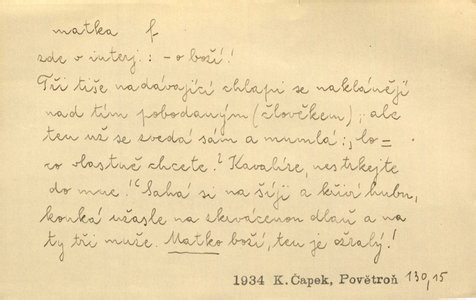 matka f
zde v interj.: -o boží!
Tři tiše nadávající chlapi se naklánějí
nad tím pobodaným (člověkem), ale
ten už se zvedá sám a mumlá: „Co=
co vlastně chcete? Kavalíre, nestrkejte
do mne!“ Sahá si na šíji a křiví hubu,
kouká užasle na zkrvácenou dlaň a na
ty tři muže. Matko boží, ten je ožralý!
1934 K.Čapek, Povětroň 130,15